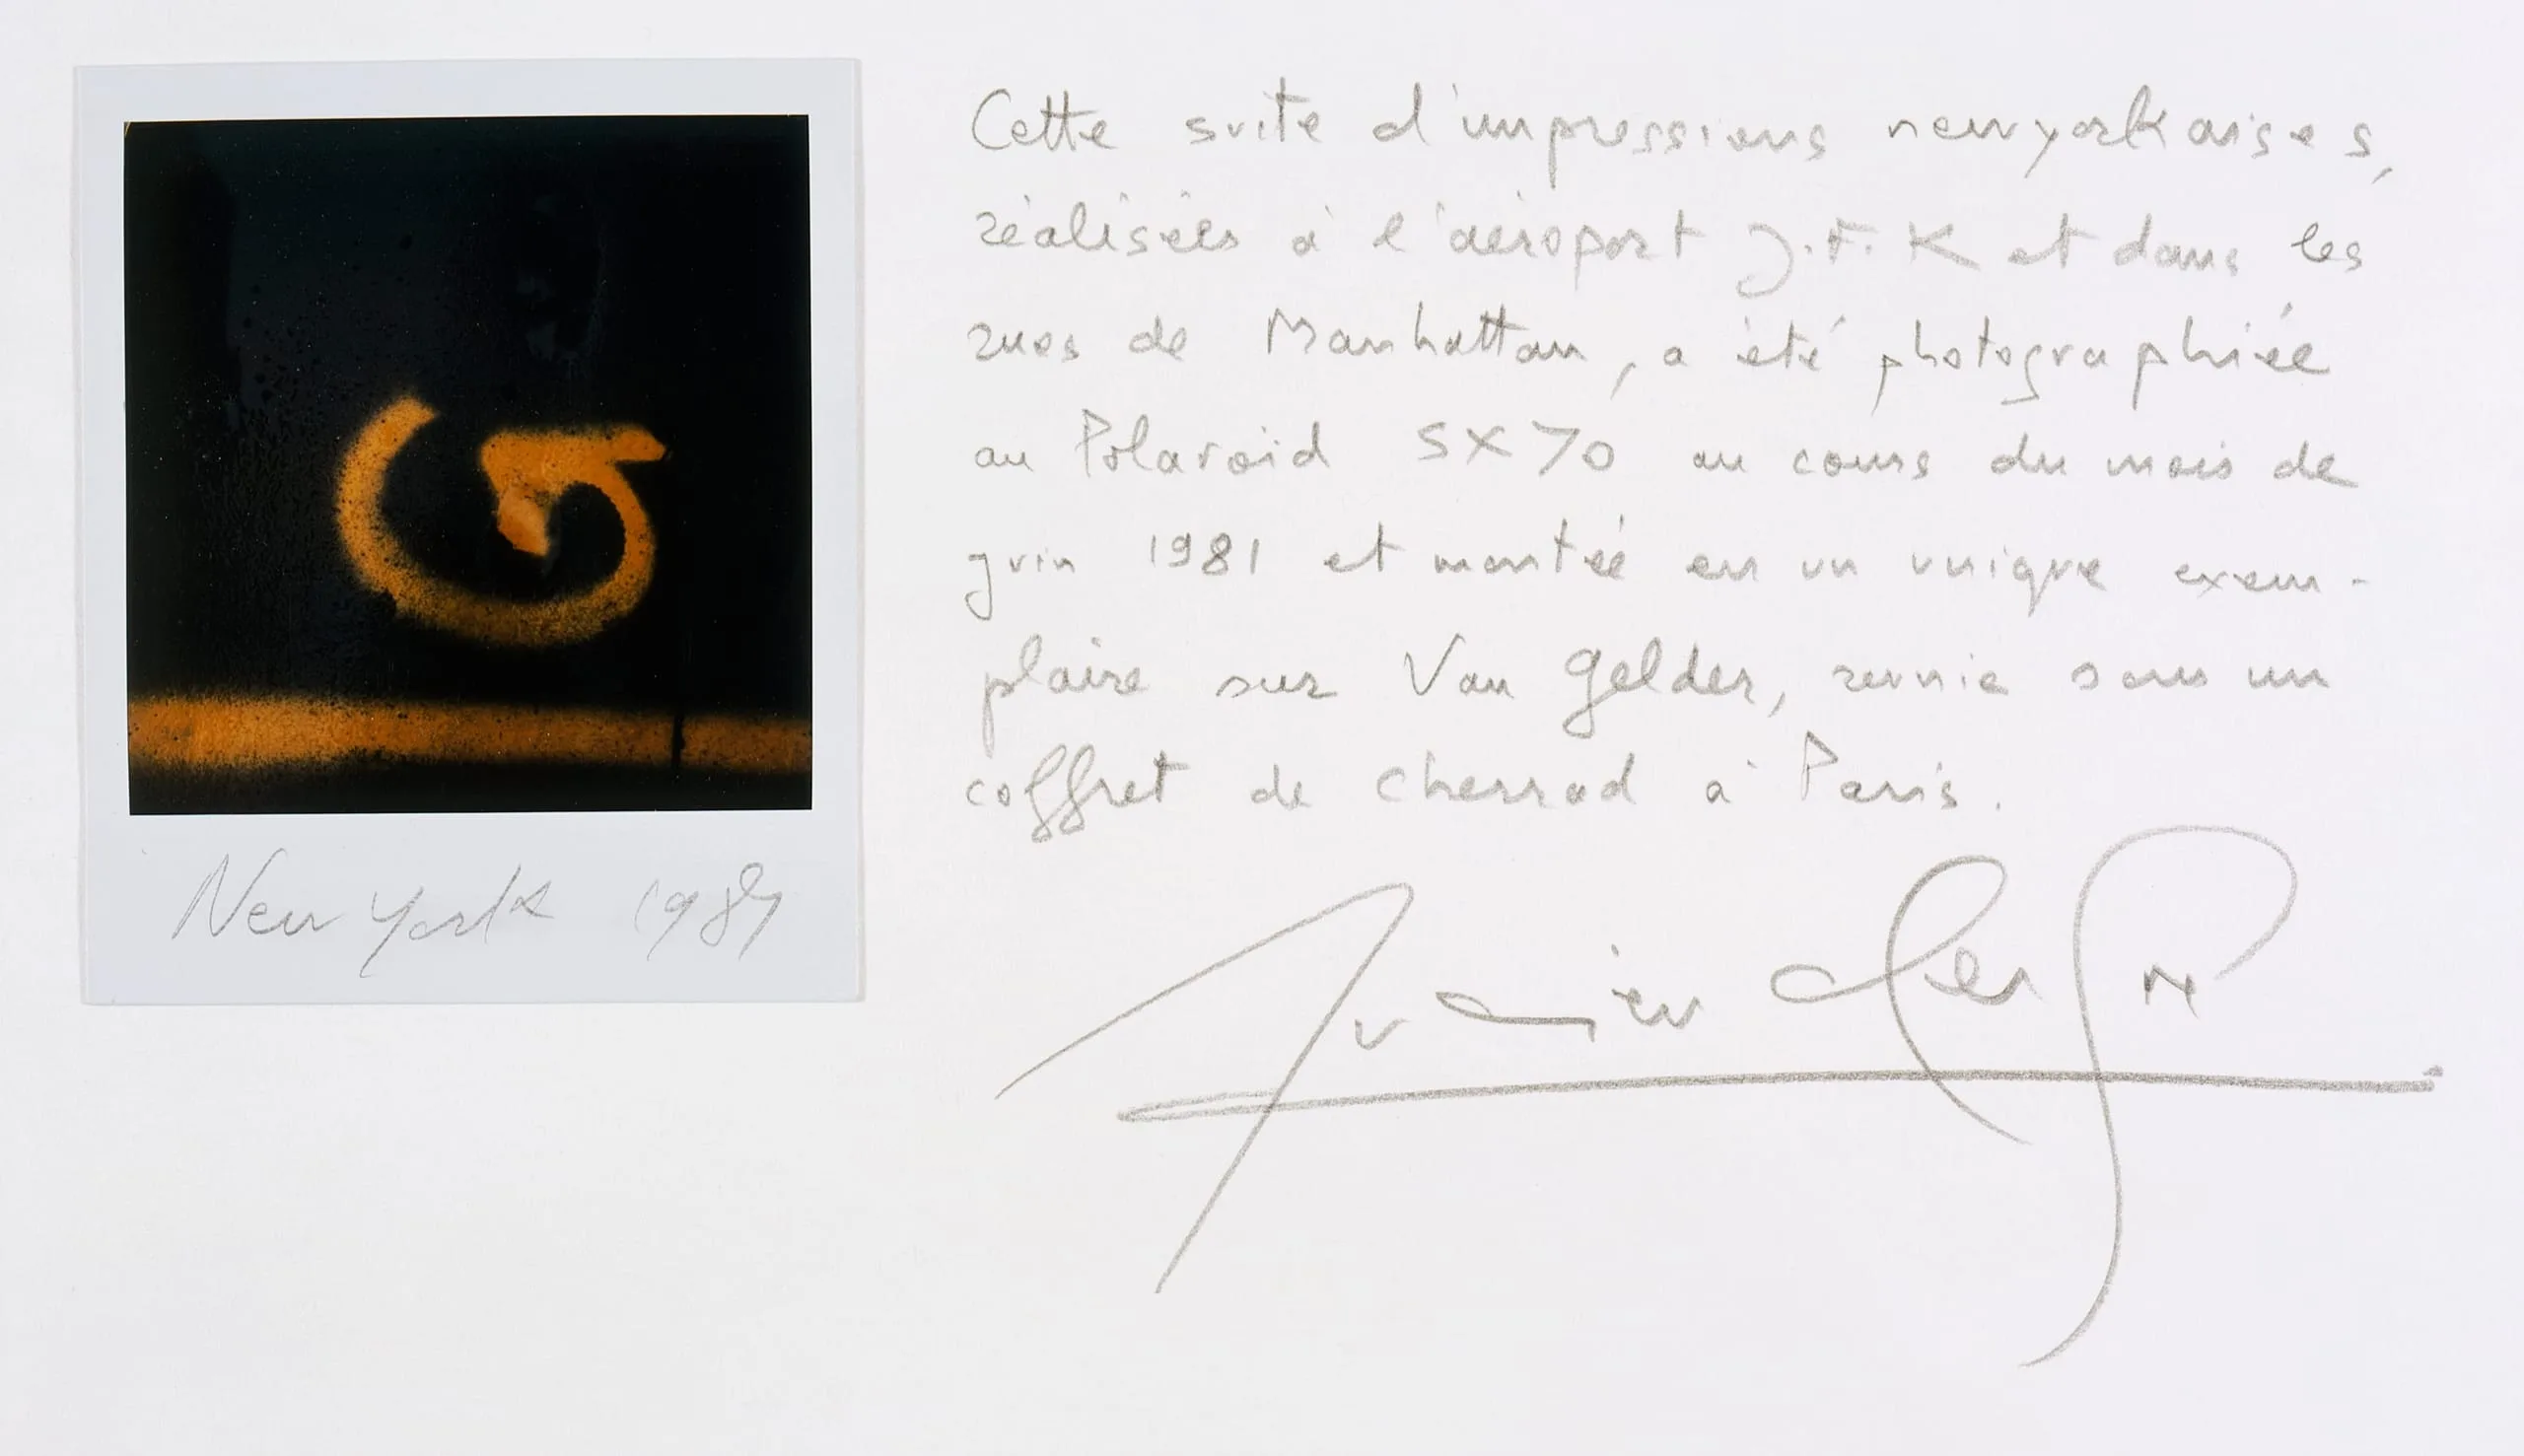 New York 1981
Cette suite d'impressions newyorkaises,
réalisées à l'aéroport J.F.K et dans les
rues de Manhattan, a été photographiée
au Polaroid SX70 au cours du mois de
juin 1981 et montée en un unique exem-
plaire sur Van Gelder, réunie sous un
coffret de Cherrad à Paris.
Lucien Clergue